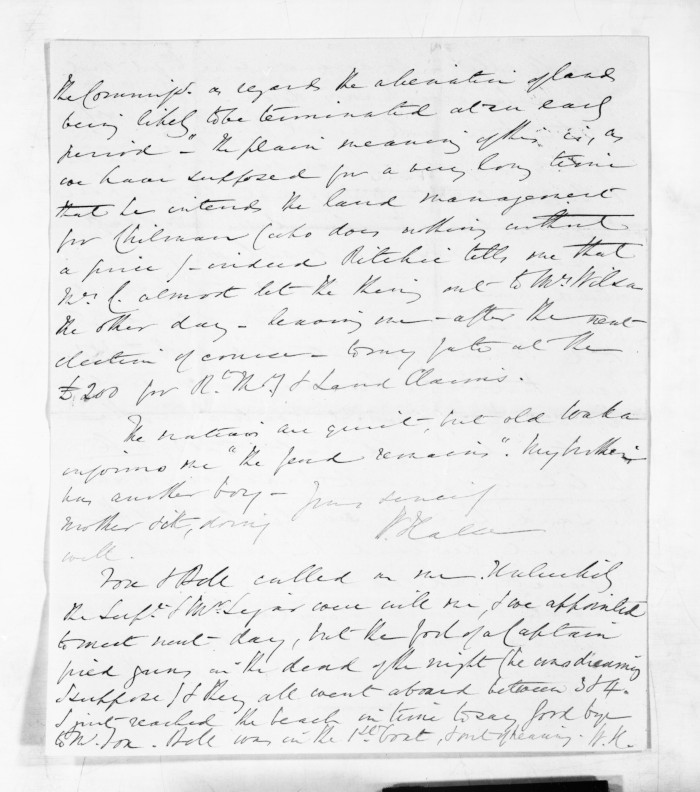 the Commissr. as regards the alienation of lands
being likely to be terminated at an early
period - "the plain meaning of this is, as
we have supposed for a very long time
that he intends the land management
for Chilman (who does nothing without
a price) - indeed Ritchie tells me that
Mr C. almost let the thing out to Mr Wilson
the other day - leaving me - after the next
election of course - to my fate at the
£200 for Rt. Mr & Land Claims.
The natives are quiet, but old Waka
informs me "the feud remains". My brother
has another boy -
mother & it, doing Yours sincerely
well. W Halse
Fox & Bell called on me. Unluckily
the Supt. & Mr. were with me, & we appointed
to meet next day, but the fool of a Captain
fired guns in the dead of the night (he was dreaming
I suppose) & they all went aboard between 3 & 4.
I just reached the beach in time to say good bye
to Mr. Fox. Bell was in the 1st boat, & out of hearing. W.H.